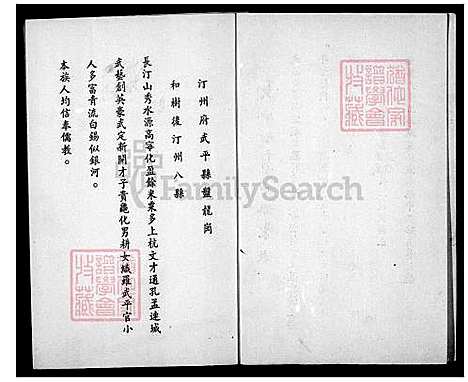 汀州府武平縣盤龍崗
和樹後汀州八縣
長汀山秀水源高寧化盈餘米粟多上杭文才通孔孟連城
武藝創英豪武定新開才子貴龜化男耕女織羅武平官小
人多富青流白錫似銀河。
本族人均信奉儒教。
FamilySearch
譜學會
收藏
譜學會
收藏